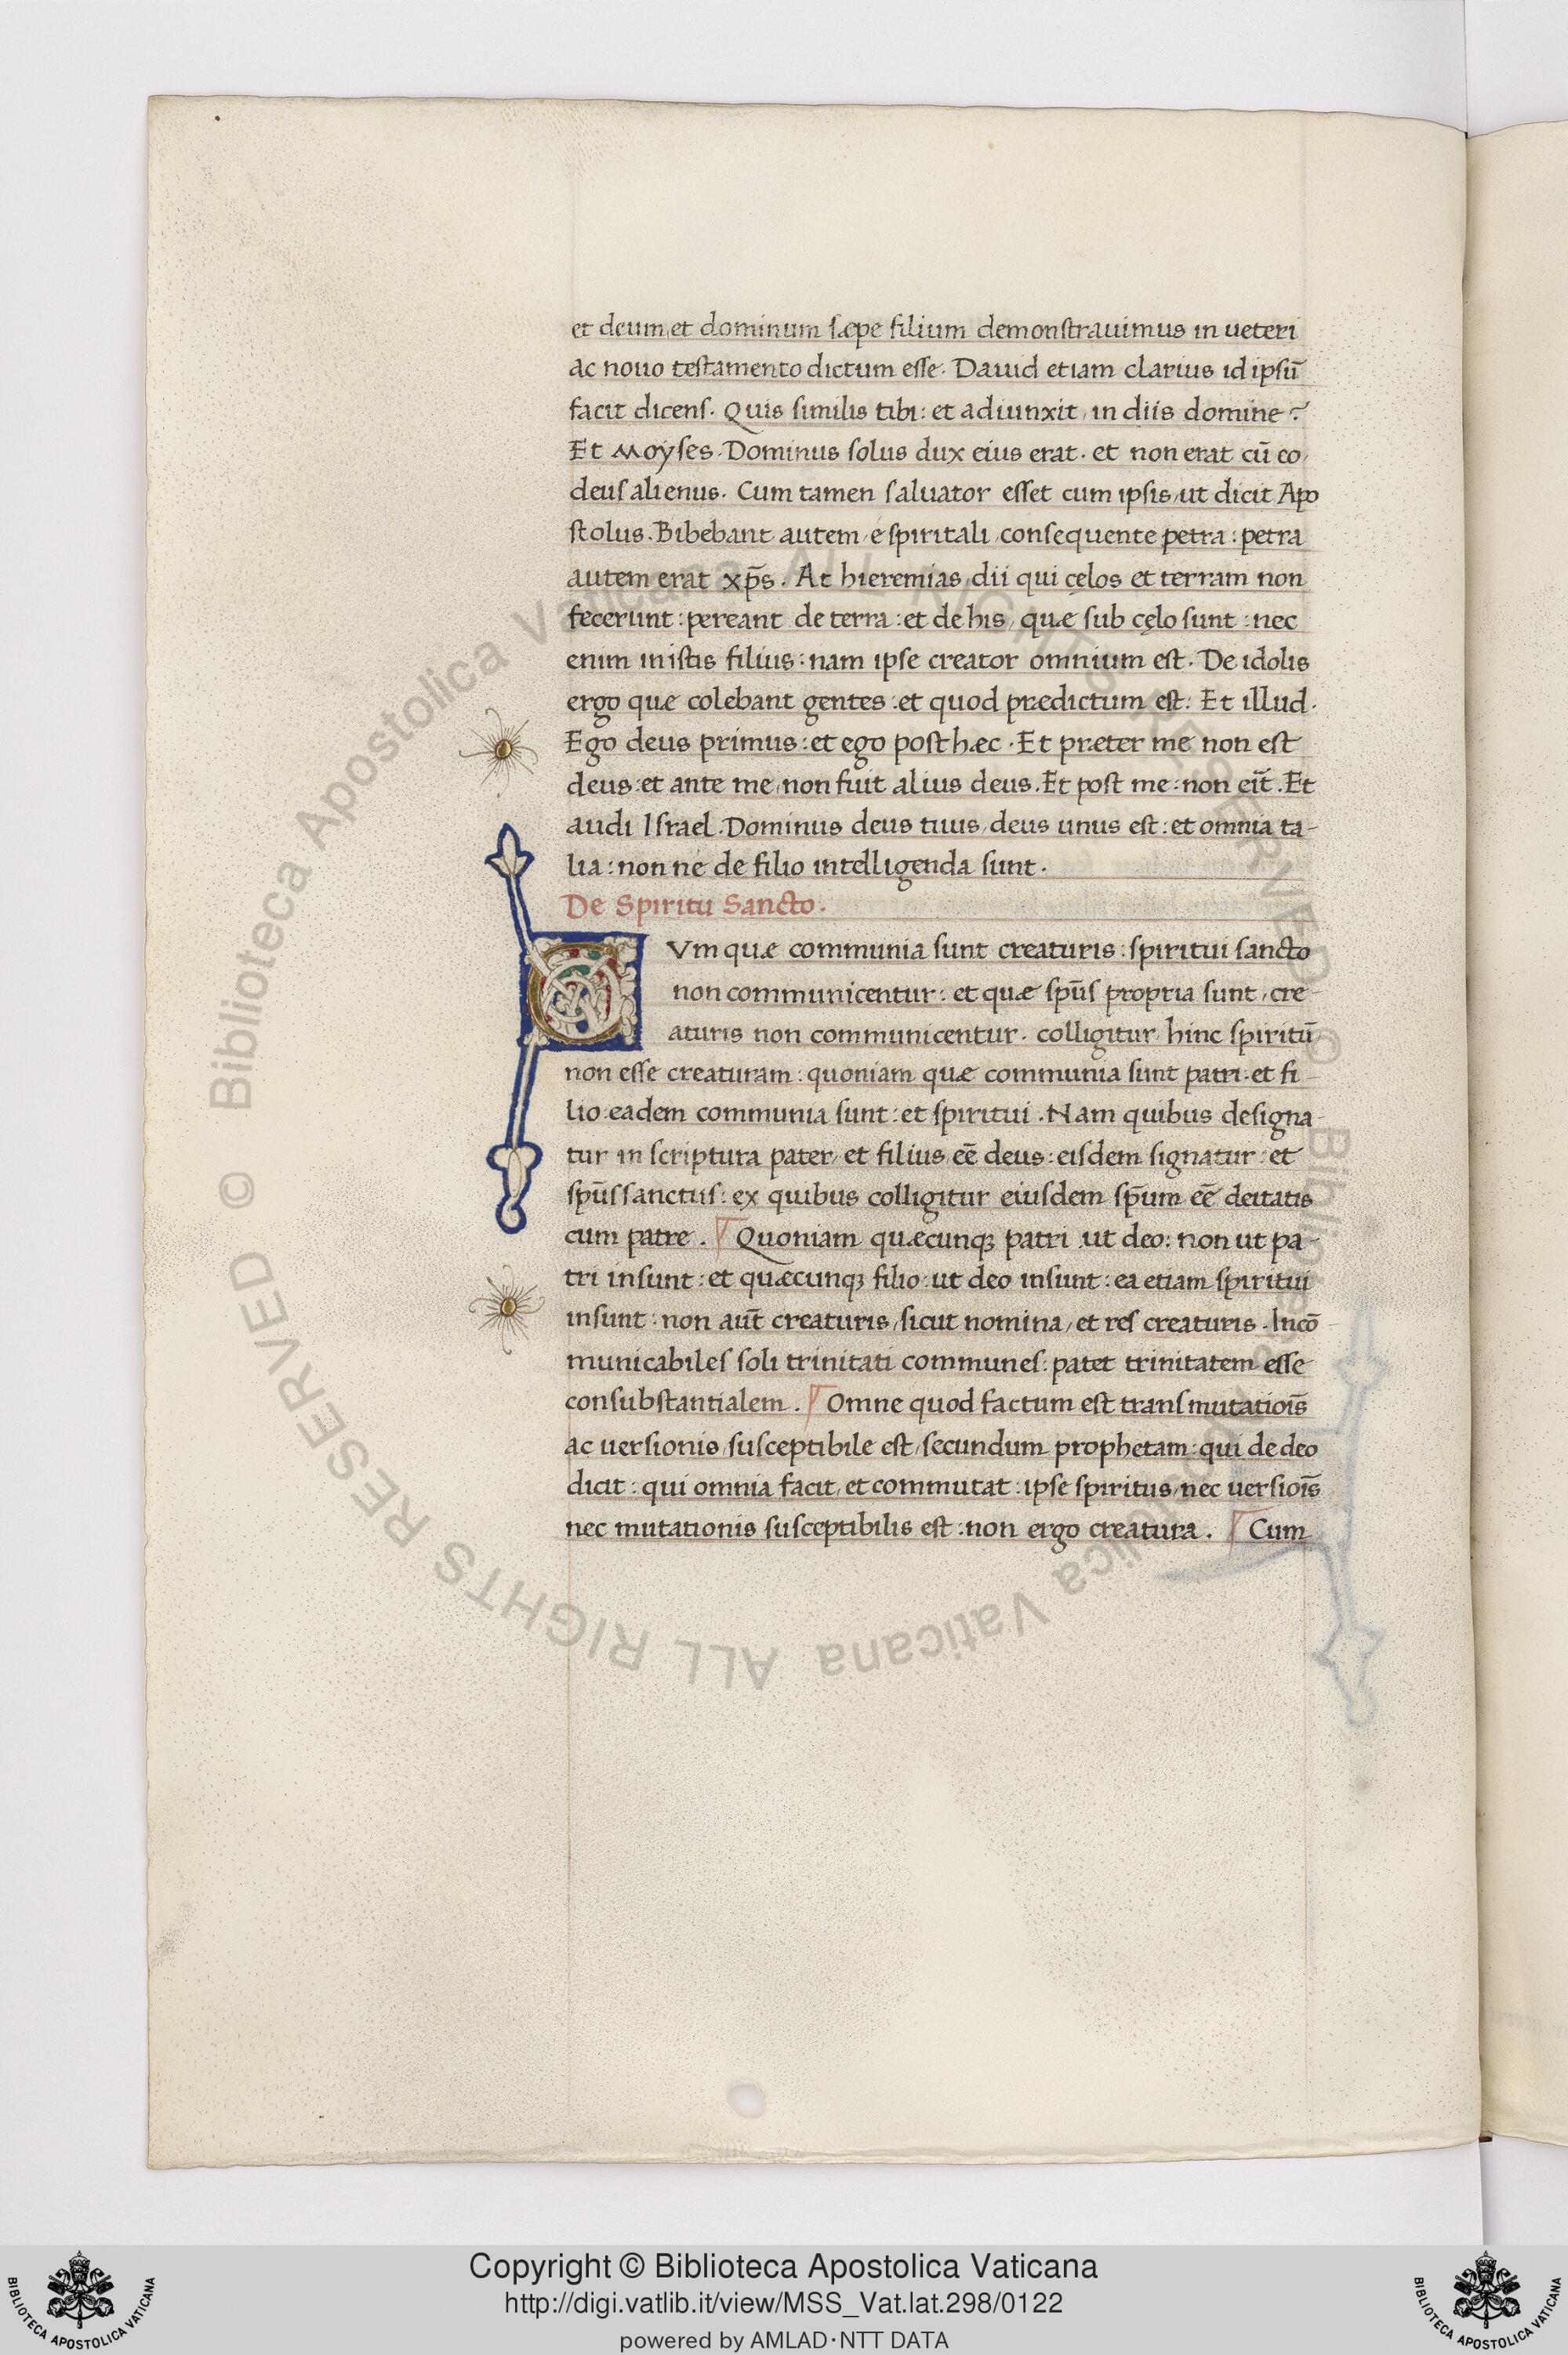 et deum, et dominum sæpe filium demonstrauimus in ueteri
ac nouo testamento dictum esse. Dauid etiam clarius id ipsũ
facit dicens. Quis similis tibi: et adiunxit, in diis domine?
Et Moyses. Dominus solus dux eius erat. et non erat cũ eo,
deus alienus. Cum tamen saluator esset cum ipsis, ut dicit Apo
stolus. Bibebant autem é spiritali, consequente petra: petra
autem erat xp̄s. At hieremias, dii qui cęlos et terram non
fecerunt: pereant de terra: et de his, quæ sub cęlo sunt: nec
enim in istis filius: nam ipse creator omnium est. De idolis
ergo quæ colebant gentes: et quod prædictum est: Et illud.
Ego deus primus: et ego post hæc. Et præter me non est
deus: et ante me, non fuit alius deus. Et post me: non eit̃. Et
audi Israel. Dominus deus tuus, deus unus est: et omnia ta-
lia: non né de filio intelligenda sunt.
De Spiritu Sancto.
CVm quæ communia sunt creaturis: spiritui sancto
non communicentur: et quæ spũs propria sunt, cre-
aturis non communicentur. colligitur hinc spiritũ
non esse creaturam: quoniam quæ communia sunt patri: et fi-
lio: eadem communia sunt: et spiritui. Nam quibus designa-
tur in scriptura pater, et filius, eē deus: eisdem signatur: et
spũs sanctus: ex quibus colligitur eiusdem sp̄um eē deitatis
cum patre. ¶ Quoniam quæcunqȝ patri ut deo: non ut pa-
tri insunt: et quæcunqȝ filio: ut deo insunt: ea etiam spiritui
insunt: non aut̃ creaturis, sicut nomina, et res creaturis. Incō-
municabiles soli trinitati communes: patet trinitatem esse
consubstantialem. ¶ Omne quod factum est transmutatiois̃
ac uersionis, susceptibile est, secundum prophetam: qui de deo
dicit: qui omnia facit, et commutat: ipse spiritus, nec uersiois̃
nec mutationis susceptibilis est: non ergo creatura. ¶ Cum
© Biblioteca Apostolica Vaticana ALL RIGHTS RESERVED © Biblioteca Apostolica Vaticana ALL RIGHTS RESERVED
Copyright © Biblioteca Apostolica Vaticana
http://digi.vatlib.it/view/MSS_Vat.lat.298/0122
powered by AMLAD·NTT DATA
BIBLIOTECA APOSTOLICA VATICANA
BIBLIOTECA APOSTOLICA VATICANA